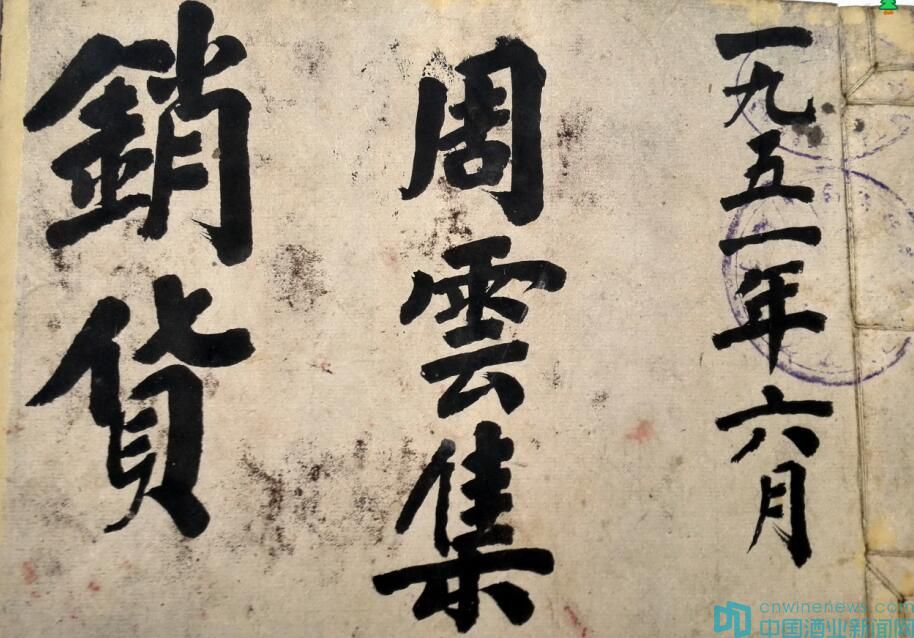 一九五一年六月
周雲集
銷貨
cnwinenews.com
中国酒业新闻网